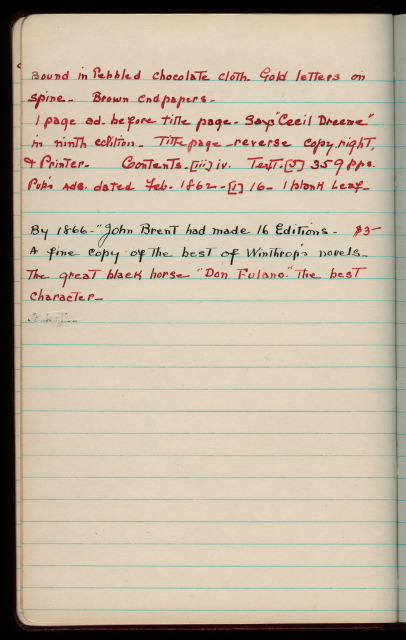 Bound in Pebbled chocolate cloth. Gold letters on
spine. Brown Endpapers.
1 page ad. before title page. Says "Cecil Dreeme"
in ninth edition. Title page - reverse copyright,
& Printer. Contents. [iii] iv. Text. [5] 359 pps.
Pub's Ads. dated Feb. 1862 - [1] 16 - 1 blank Leaf -
By 1866 - "John Brent had made 16 Editions - $3-
A fine copy of the best of Winthrop's novels.
The great black horse "Don Fulano." The best
character -